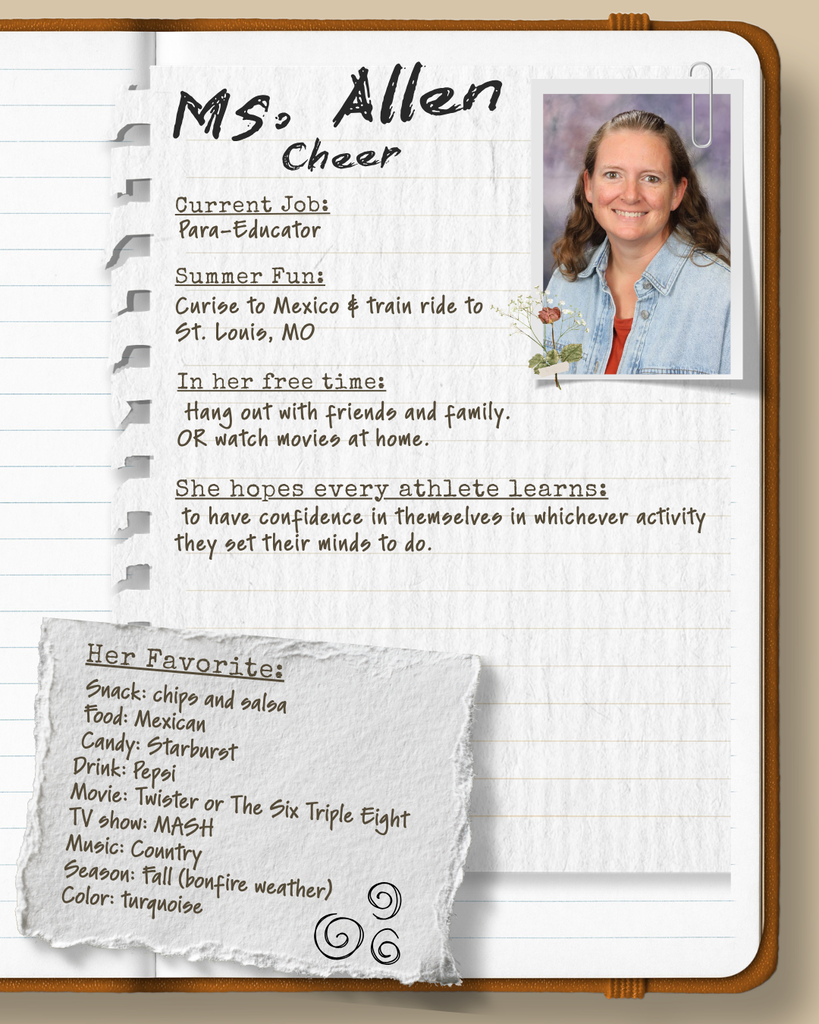 Ms. Allen
Cheer
Current Job:
Para-Educator
Summer Fun:
Curise to Mexico & train ride to
St. Louis, MO
In her free time:
Hang out with friends and family.
OR watch movies at home.
She hopes every athlete learns:
to have confidence in themselves in whichever activity
they set their minds to do.
Her Favorite:
Snack: chips and salsa
Food: Mexican
Candy: Starburst
Drink: Pepsi
Movie: Twister or The Six Triple Eight
TV show: MASH
Music: Country
Season: Fall (bonfire weather)
Color: turquoise